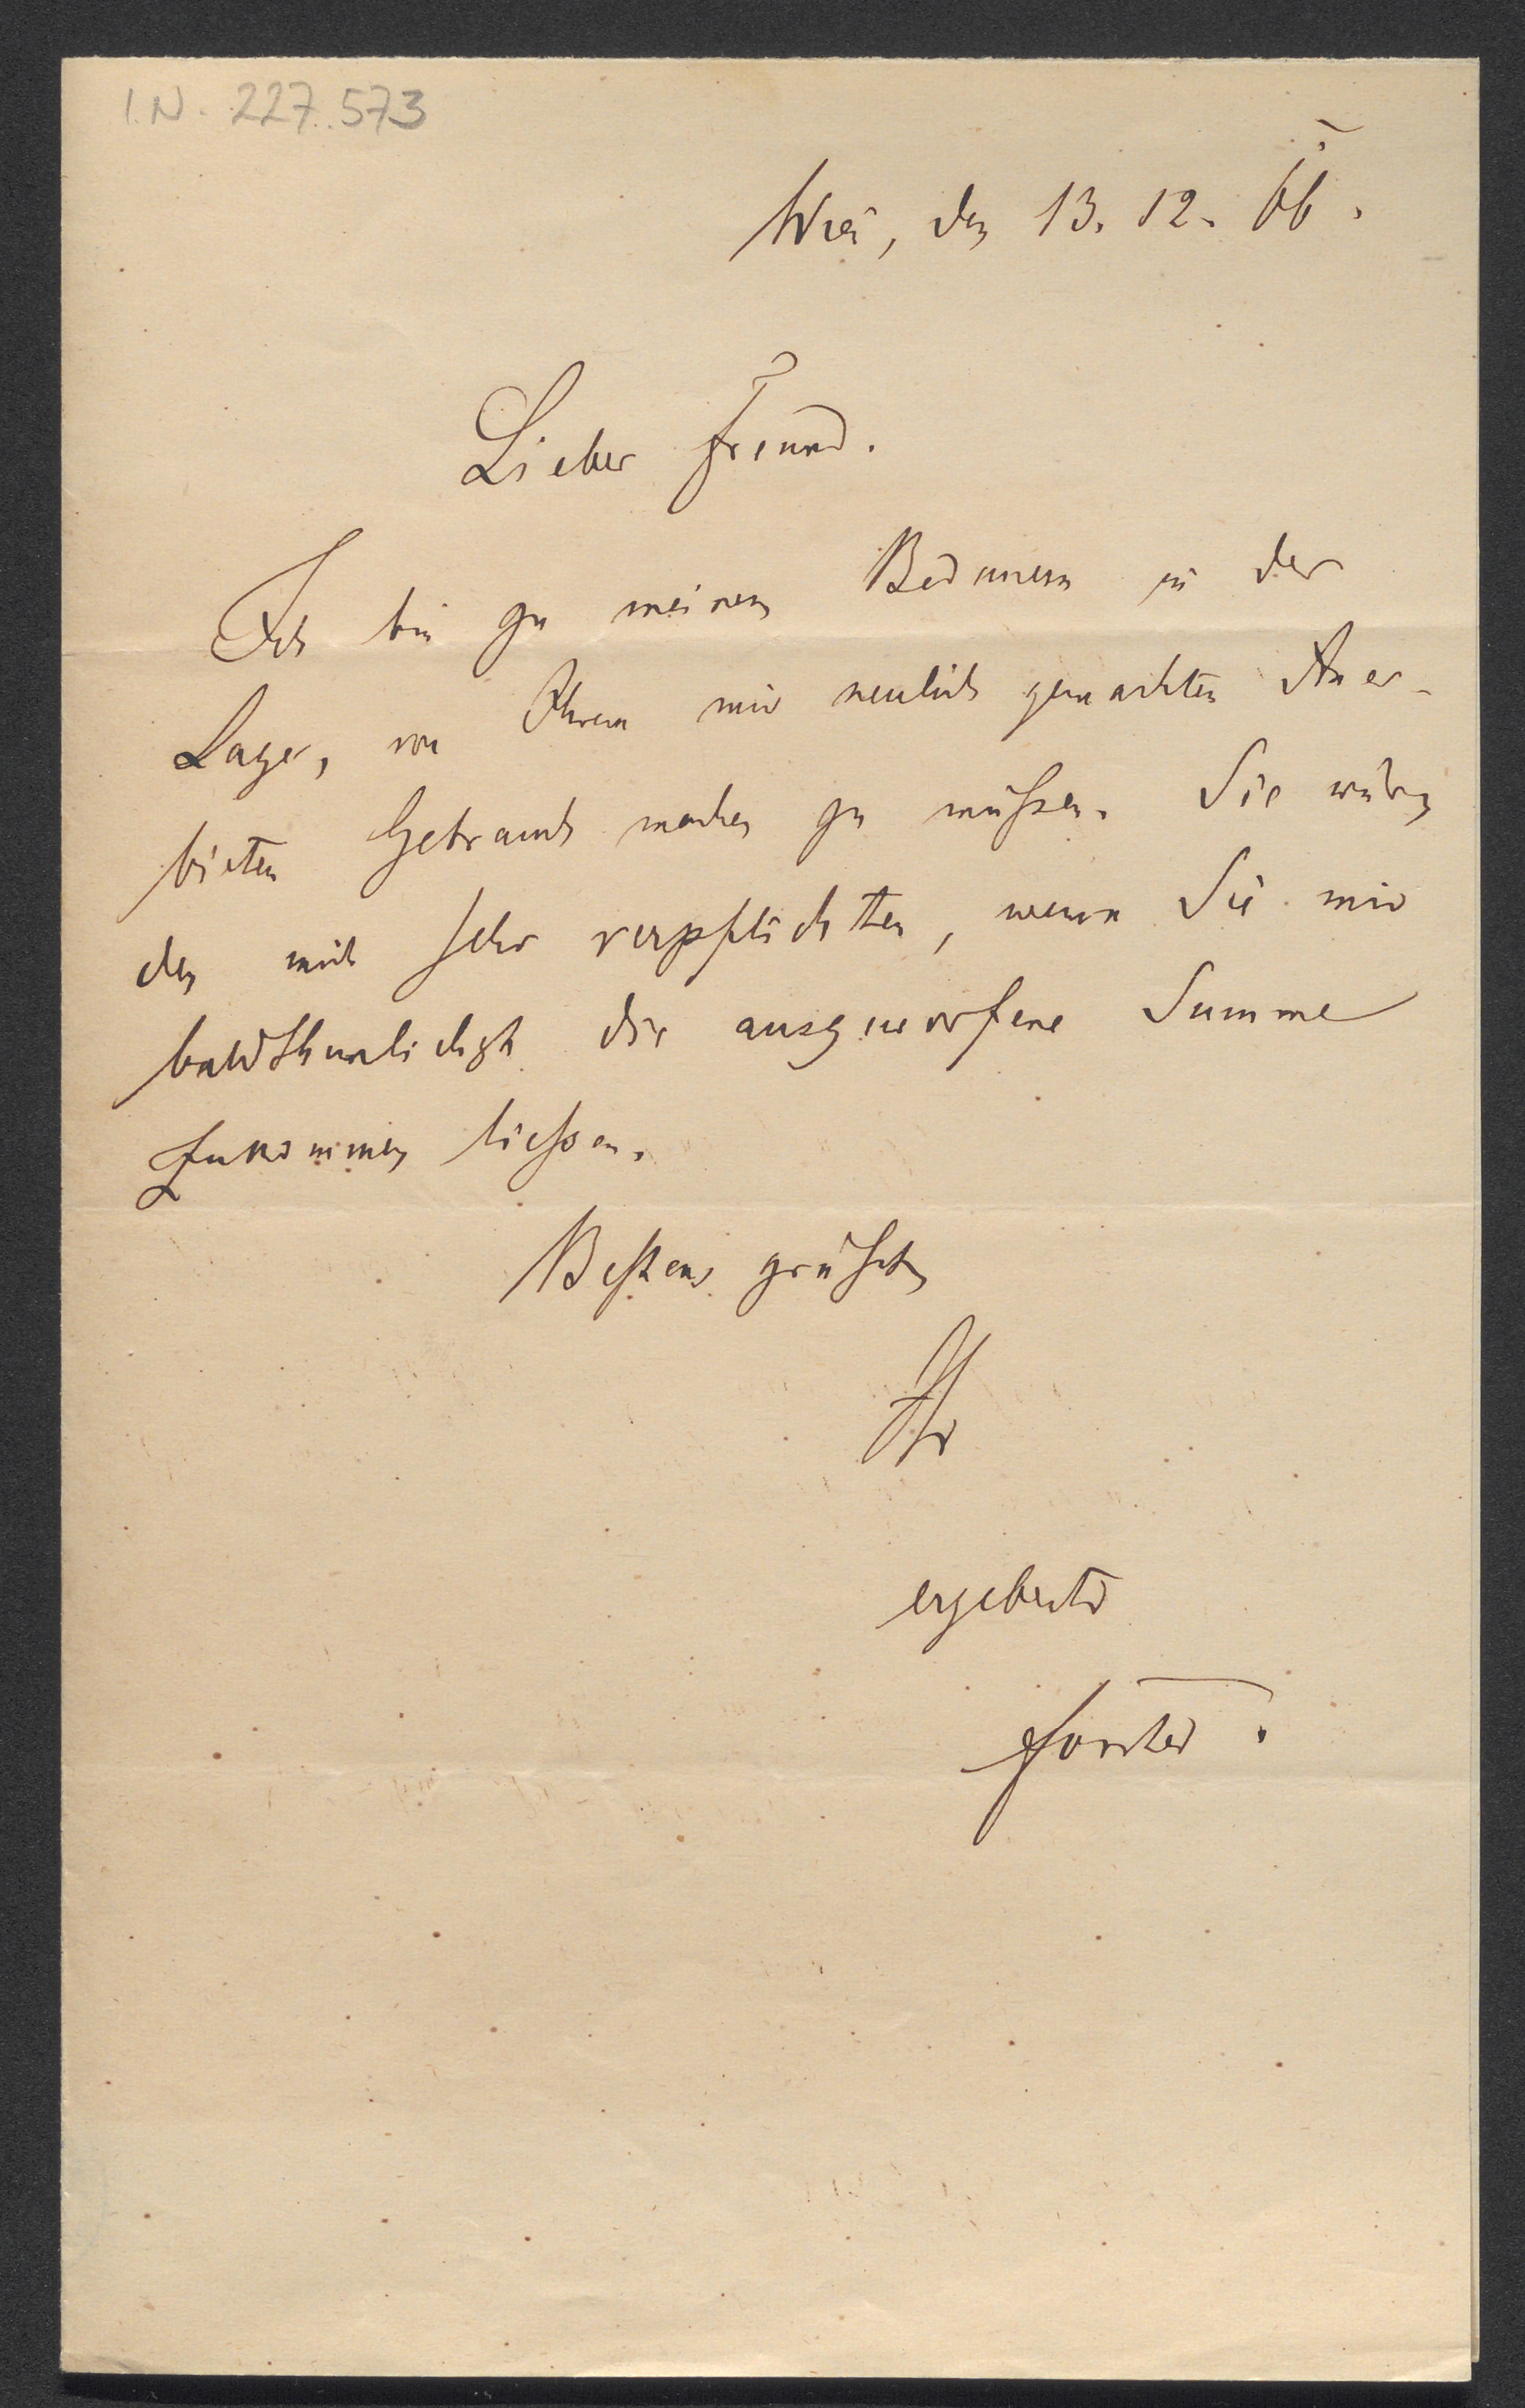 I.N. 227.573
Wien, den 13. 12. 66.
Lieber Freund.
Ich bin zu meinem Bedauern in der
Lage, von Ihrem mir neulich gemachten Aner-
bieten Gebrauch machen zu müssen. Sie würden
den mich sehr verpflichten, wenn Sie mir
baldthunlichst die ausgeworfene Summe
zukommen ließen.
Bestens grüßend
Ihr
ergebenster
Förster.